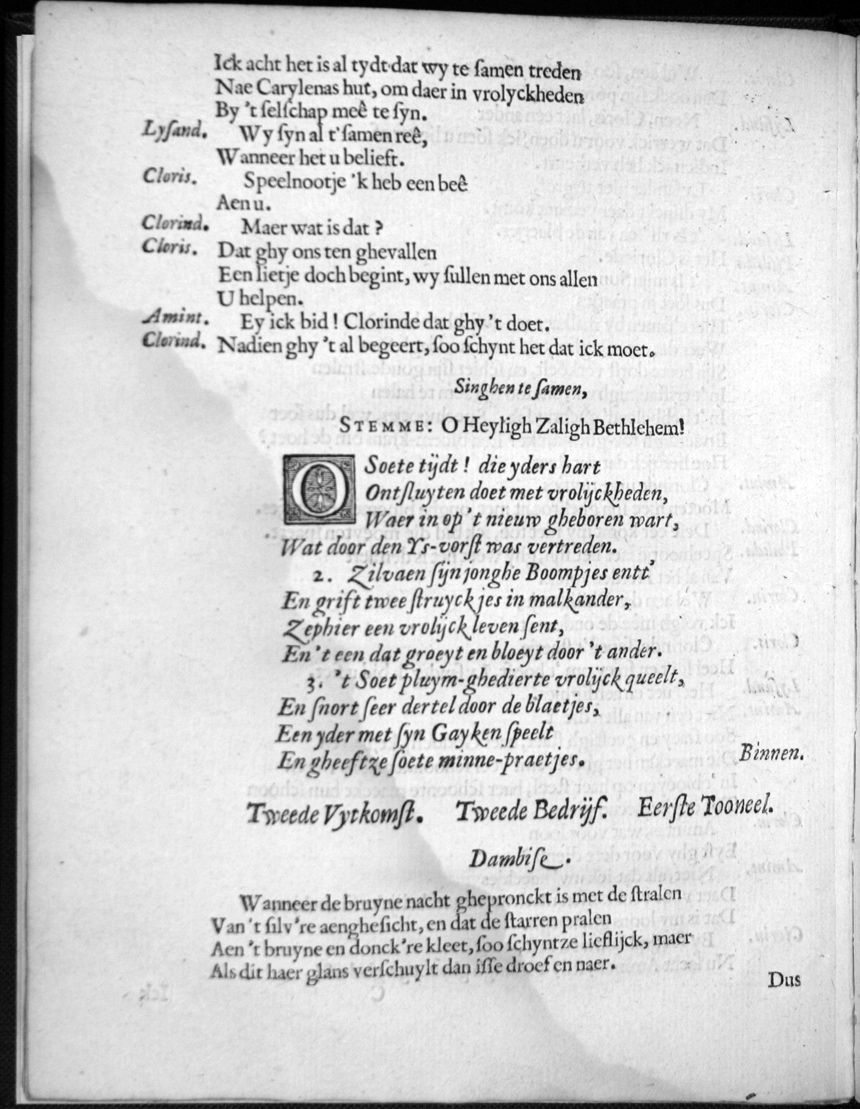 Ick acht het is al tydt dat wy te ſamen treden
Nae Carylenas hut, om daer in vrolyckheden
By 't ſelſchap meê te ſyn.
Lyſand. Wy ſyn al t'ſamen reê,
Wanneer het u belieft.
Cloris. Speelnootje 'k heb een beê
Aen u.
Clorind. Maer wat is dat ?
Cloris. Dat ghy ons ten ghevallen
Een lietje doch begint, wy ſullen met ons allen
U helpen.
Amint. Ey ick bid ! Clorinde dat ghy 't doet.
Clorind. Nadien ghy 't al begeert, ſoo ſchynt het dat ick moet.
Singhen te ſamen,
STEMME: O Heyligh Zaligh Bethlehem!
O Soete tijdt ! die yders hart
Ontſluyten doet met vrolijckheden,
Waer in op 't nieuw gheboren wart,
Wat door den Ys-vorſt was vertreden.
2. Zilvaen ſijn jonghe Boompjes entt'
En grift twee ſtruyckjes in malkander,
Zephier een vrolijck leven ſent,
En 't een dat groeyt en bloeyt door 't ander.
3. 't Soet pluym-ghedierte vrolijck queelt,
En ſnort ſeer dertel door de blaetjes,
Een yder met ſyn Gayken ſpeelt
En gheeftze ſoete minne-praetjes.
Binnen.
Tweede Vytkomſt. Tweede Bedrijf. Eerſte Tooneel.
Dambiſe.
Wanneer de bruyne nacht ghepronckt is met de ſtralen
Van 't ſilv're aengheſicht, en dat de ſtarren pralen
Aen 't bruyne en donck're kleet, ſoo ſchyntze lieflijck, maer
Als dit haer glans verſchuylt dan iſſe droef en naer.
Dus